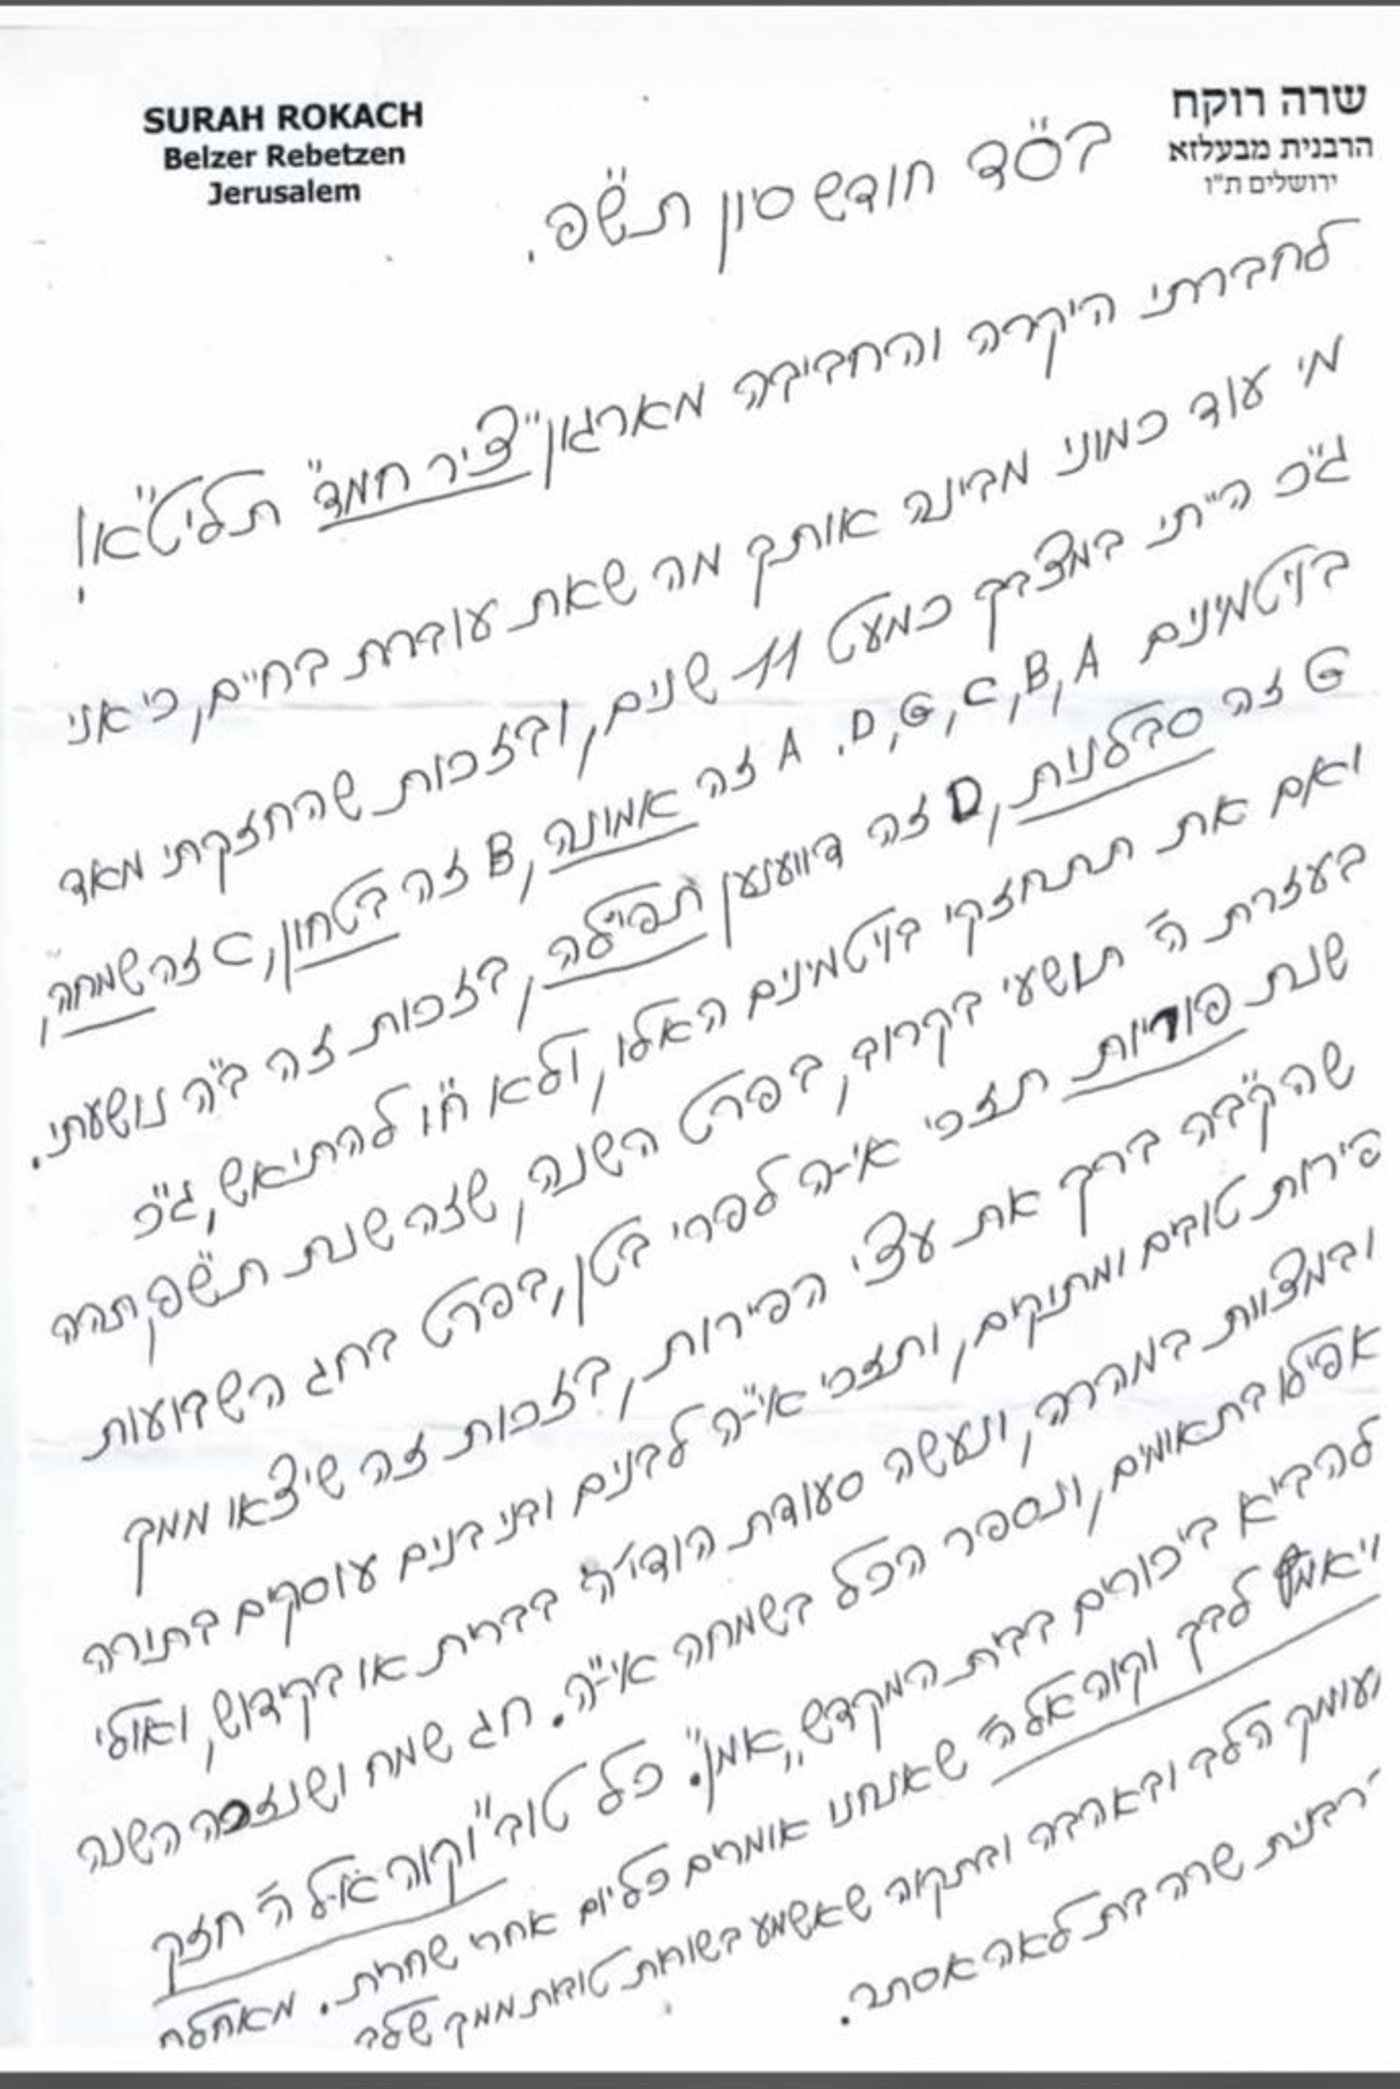 SURAH ROKACH
Belzer Rebetzen
Jerusalem
שרה רוקח
הרבנית מבעלזא
ירושלים ת"ו
בס"ד חודש סיון תש"פ.
לחברתי היקרה והחביבה מארגון "ציר חמד" תליט"א!
מי עוד כמוני מבינה אותך מה שאת עוברת בחיים, כי אני
ג"כ היתי במצבך כמעט 11 שנים, ובזכות שהחזקתי מאד
בויטמינים A, B, C, G, D. A זה אמונה, B זה בטחון, C זה שמחה,
G זה סבלנות, D זה דווענען תפילה, בזכות זה ב"ה נושעתי.
ואם את תתחזקי בויטמינים האלו, ולא ח"ו להתיאש, ג"כ
בעזרת ה' תושעי בקרוב, בפרט השנה, שזה שנת תש"פ, תהה
שנת פוריות תזכי אי"ה לפרי בטן, בפרט בחג השבועות
שהקב"ה ברך את עצי הפירות, בזכות זה שיצאו ממך
פירות טובים ומתוקים, ותזכי אי"ה לבנים ובני בנים עוסקים בתורה
ובמצוות במהרה, ונעשה סעודת הודי' ה' בברית או בקידוש, ואולי
אפילו בתאומים, ונספר הכל בשמחה אי"ה. חג שמח ושנזכה השנה
להביא ביכורים בבית המקדש, "אמן". כל טוב "וקוה אל ה' חזק
ויאמץ לבך וקוה אל ה' שאנחנו אומרים כל יום אחרי שחרית. מאחלת
מעומק הלב ובאהבה ובתקוה שאשמע בשורות טובות ממך שלך
רבנית שרה בת לאה אסתר.